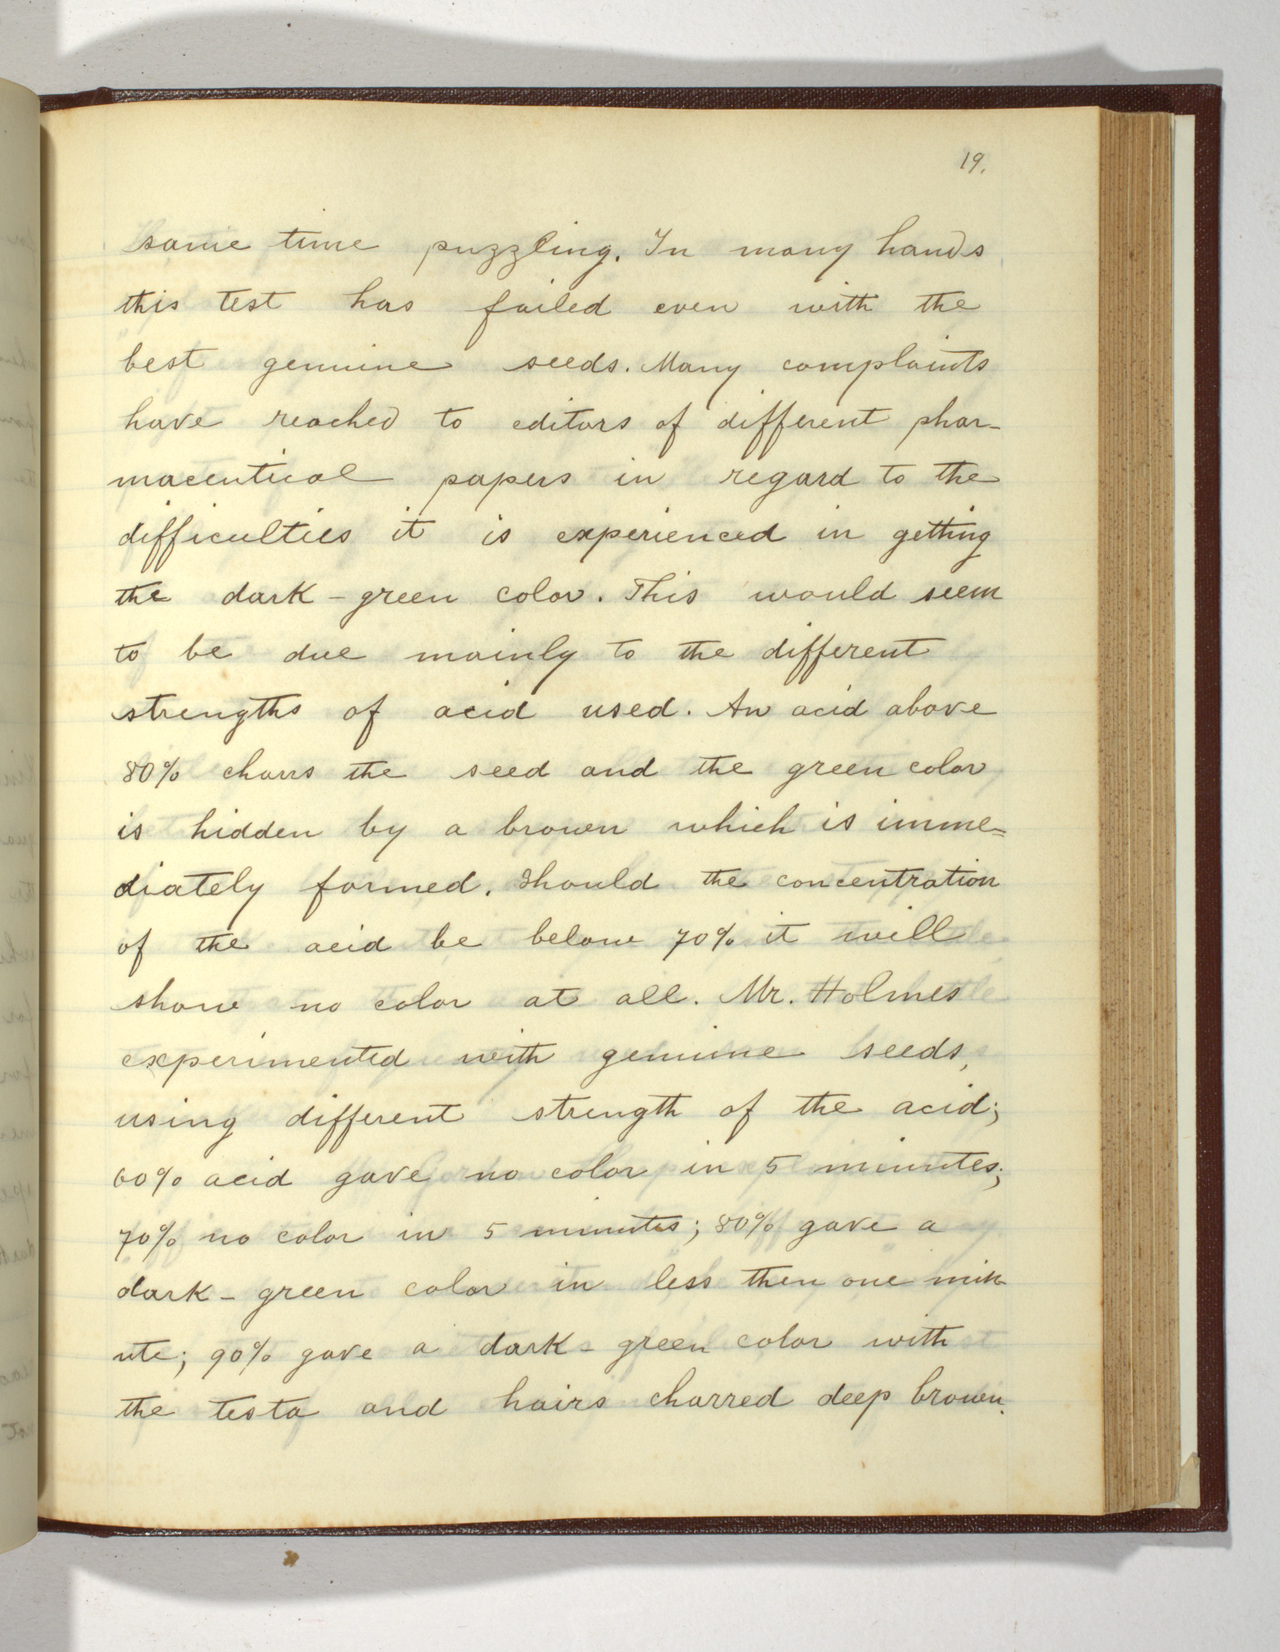 19.
same time puzzling. In many hands
this test has failed even with the
best genuine seeds. Many complaints
have reached to editors of different phar-
maceutical papers in regard to the
difficulties it is experienced in getting
the dark-green color. This would seem
to be due mainly to the different
strengths of acid used. An acid above
80% chars the seed and the green color
is hidden by a brown which is imme=
diately formed. Should the concentration
of the acid be below 70% it will
show no color at all. Mr. Holmes
experimented with genuine seeds,
using different strength of the acid;
60% acid gave no color in 5 minutes;
70% no color in 5 minutes; 80% gave a
dark-green color in less then one min
ute; 90% gave a dark-green color with
the testa and hairs charred deep brown.